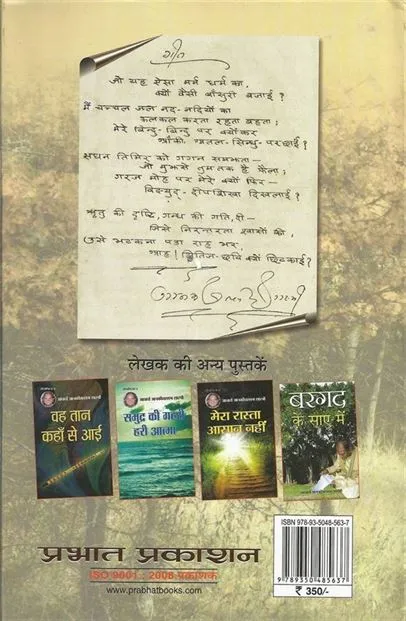 गीत
जो यह ऐसा मर्म धर्म का,
क्यों वैसी बाँसुरी बजाई ?
मैं चञ्चल जल नद-नदियों का
कलकल करता रहता बहता;
मेरे बिन्दु-बिन्दु पर क्योंकर
झाँकी अतल-सिन्धु-परछाईं ?
सघन तिमिर को गगन समझता—
जो मुझसे तुम तक है फैला;
गरज मोह पर मेरे क्यों फिर—
विद्युद्-दीपशिखा दिखलाई ?
ऋतु की दृष्टि, गन्ध की गति, दी—
जिसे निरन्तरता श्वासों की,
उसे भटकना पड़ा राह भर,
आह! क्षितिज-छवि क्यों छिटकाई ?
लेखक की अन्य पुस्तकें
आचार्य जानकीवल्लभ शास्त्री
वह तान
कहाँ से आई
आचार्य जानकीवल्लभ शास्त्री
समुद्र की गहरी
हरी आत्मा
आचार्य जानकीवल्लभ शास्त्री
मेरा रास्ता
आसान नहीं
बरगद
के साए में
आचार्य जानकीवल्लभ शास्त्री
प्रभात प्रकाशन
ISO 9001 : 2008 प्रकाशक
www.prabhatbooks.com
ISBN 978-93-5048-563-7
9789350485637
₹ 350/-